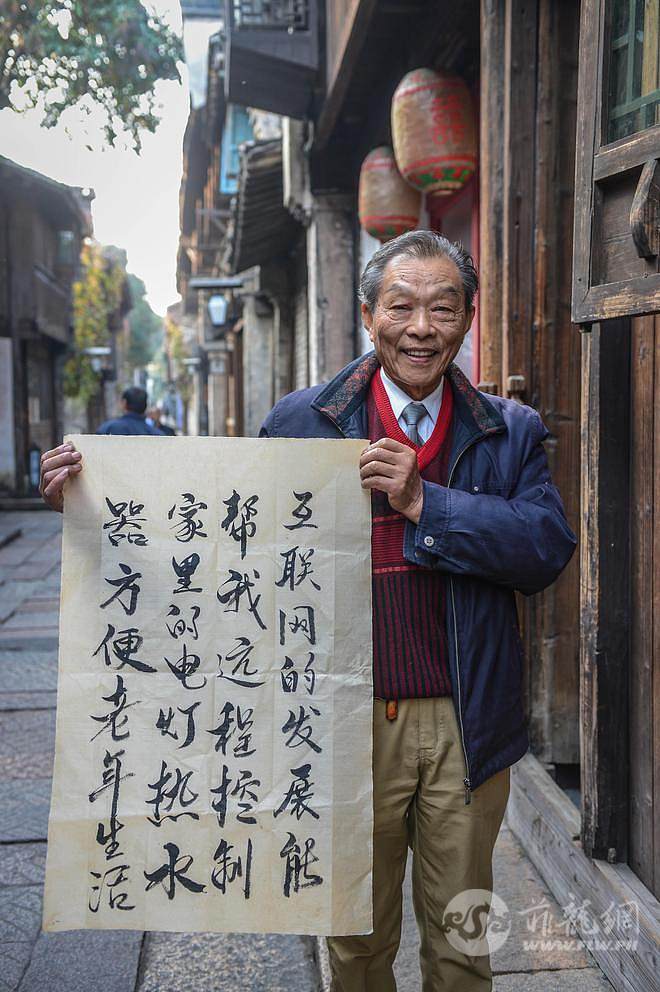 互联网的发展能
帮我远程控制
家里的电灯热水
器方便老年生活
菲龍網
WWW.FLW.PH